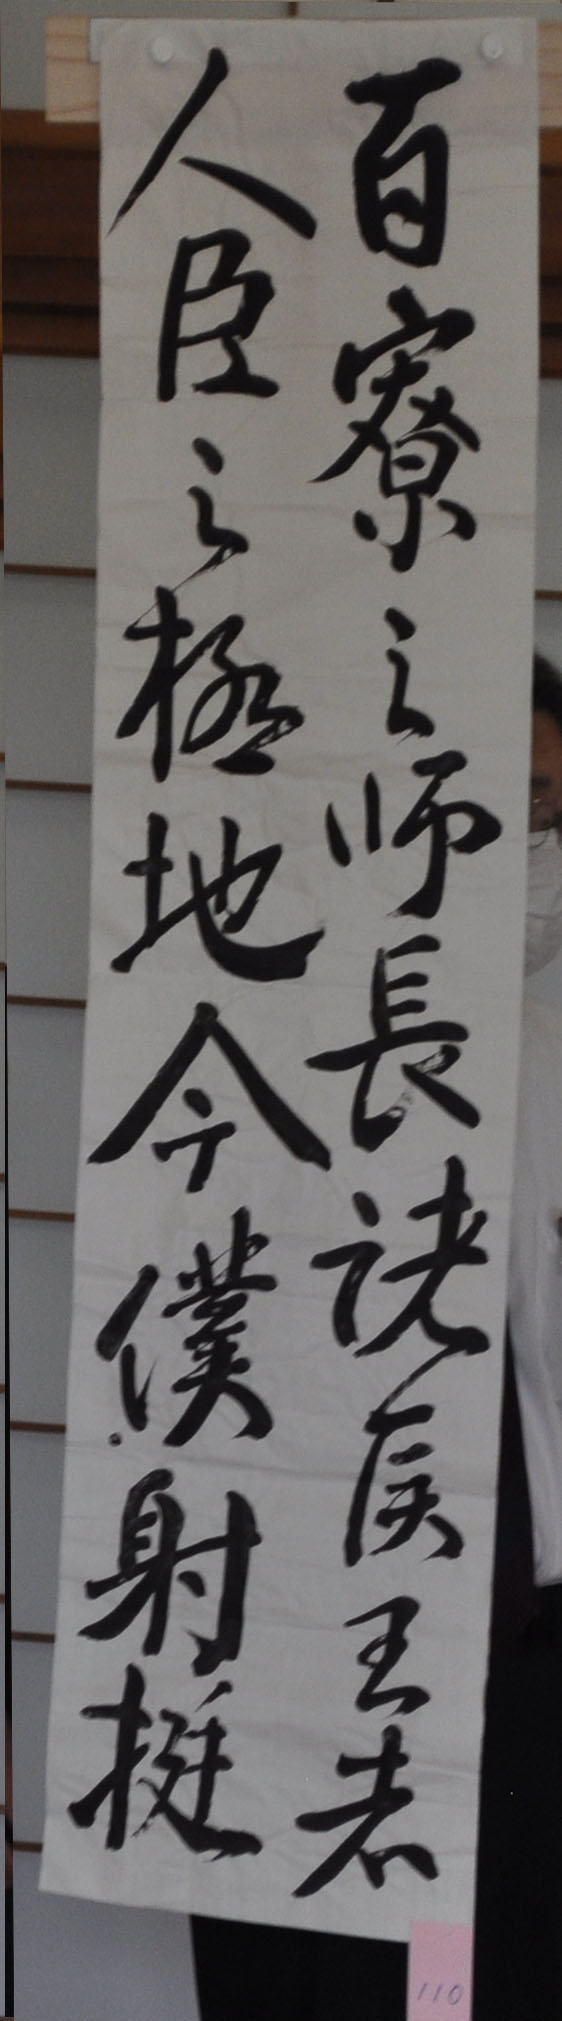 百寮之師長諸侯王者
人臣之極地今僕射挺
110